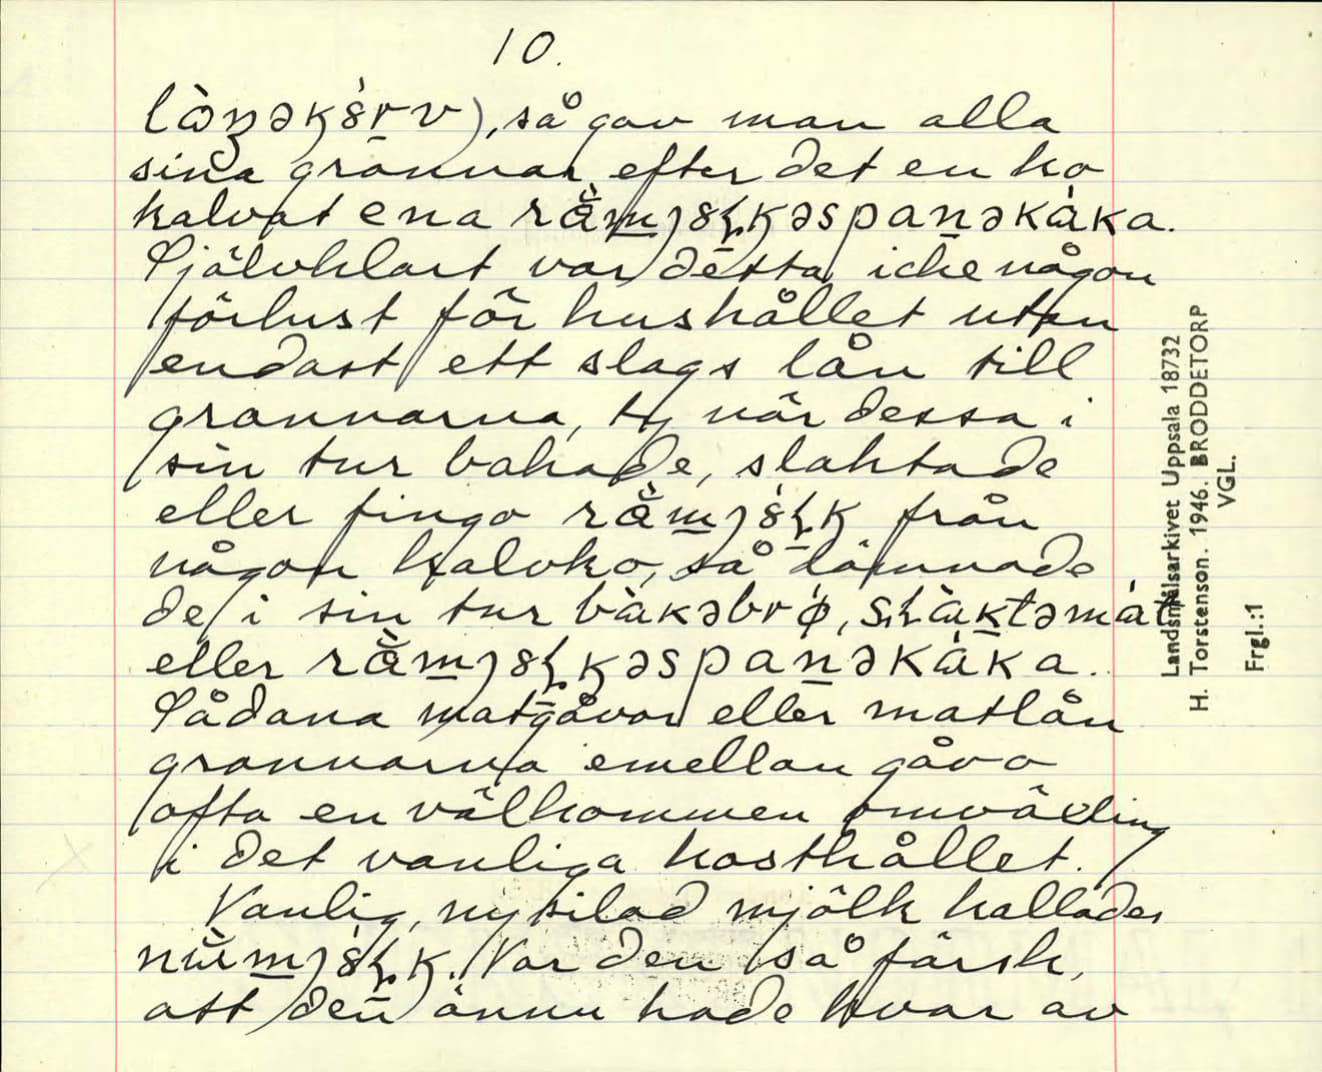 10.
så gav man alla
sina grannar efter det en ko
kalvat ena
Självklart var detta icke någon
förlust för hushållet utan
endast ett slags lån till
grannarna, ty när dessa i
sin tur bakade, slaktade
eller fingo från
någon kalvko, så lämnade
de i sin tur
eller
Sådana matgåvor eller matlån
grannarna emellan gåvo
ofta en välkommen omväxling
i det vanliga kosthållet.
Vanlig, nysilad mjölk kallades
Var den så färsk,
att den ännu hade kvar av
Landsmålsarkivet Uppsala 18732
H. Torstenson. 1946. BRODDETORP
VGL.
Frgl.:1